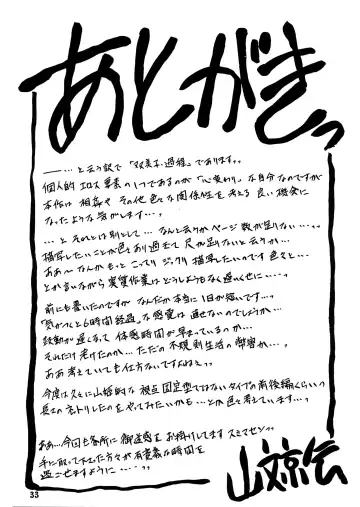 あとがきっ
――…と云う訳で「双美不過程」であります。。
個人的エロス要素の1つであるが「心変わり」な自分なのですが
本作は相姦やその他色々な関係性を考える良い機会に
なったような気がします…。
…と そのことは別として…なんと云うかページ数が足りない…。。
描写したいことが色々あり過ぎて尺が足りないと云うか…
あぁ〜なんかもっとこってりジックリ描写したいのです色々と…
とか言いながら実質作業はどうしようもなく遅いくせに…。
前にも書いたのですがなんだか本当に1日が短いです…。
「気がつくと6時間経過」な感覚は直せないのでしょうか…
鼓動が遅くなって体感時間が早まっているのか…
それだけ老けたのか…ただの不規則生活の弊害か…。
ああ考えていても仕方ないですよねぇ。
今度は久々に山姥的な視点固定型ではないタイプの前後編くらいの
長さのネトリものをやってみたいかも…とか色々考えています…。
ああ…今回も各所に御迷惑をお掛けしてますスミマセン。。
手に取って下さった方々が有意義な時間を
過ごせますように…。。
山文京伝
33